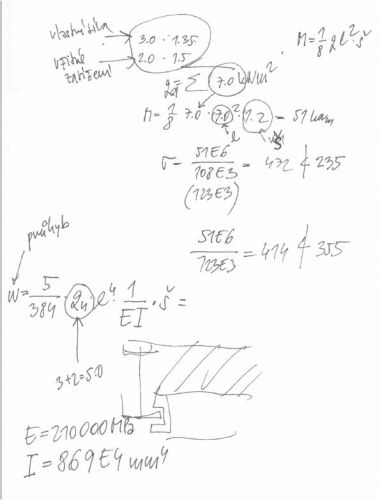 vlastní tíha
3.0 · 1.35
užitné
zatížení
2.0 · 1.5
M = 1/8 q l² · š
qd = Σ 7.0 kN/m²
M = 1/8 · 7.0 · 7.0² · 1.2 = 51 kNm
l
š
σ = 51E6 / 108E3 = 472 ≮ 235
(123E3)
51E6 / 123E3 = 414 ≮ 355
průhyb
w = 5/384 · qn · l⁴ · 1/EI · š =
3+2=5.0
E = 210000 MPa
I = 869E4 mm⁴